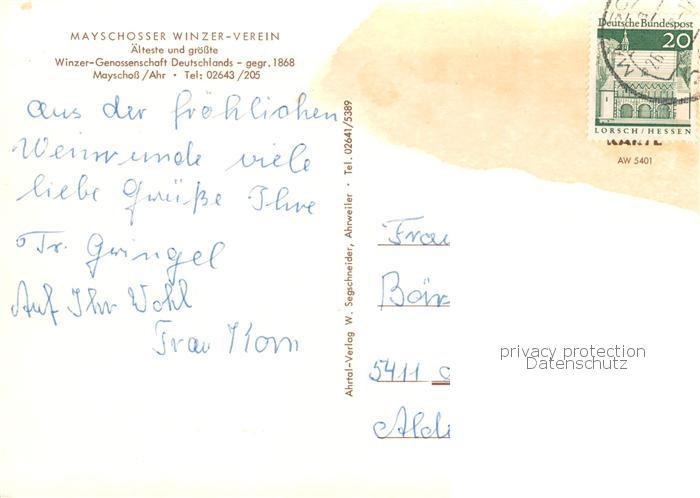 MAYSCHOSSER WINZER-VEREIN
Älteste und größte
Winzer-Genossenschaft Deutschlands - gegr. 1868
Mayschoß/Ahr · Tel: 02643/205
aus der fröhlichen
Weinrunde viele
liebe Grüße Ihre
Fr. Gwingel
Auf Ihr Wohl
Frau Korn
Ahrtal-Verlag W. Segschneider, Ahrweiler · Tel. 02641/5389
Deutsche Bundespost
20
LORSCH/HESSEN
KARTE
AW 5401
Frau
Bär
5411
Ald
privacy protection
Datenschutz